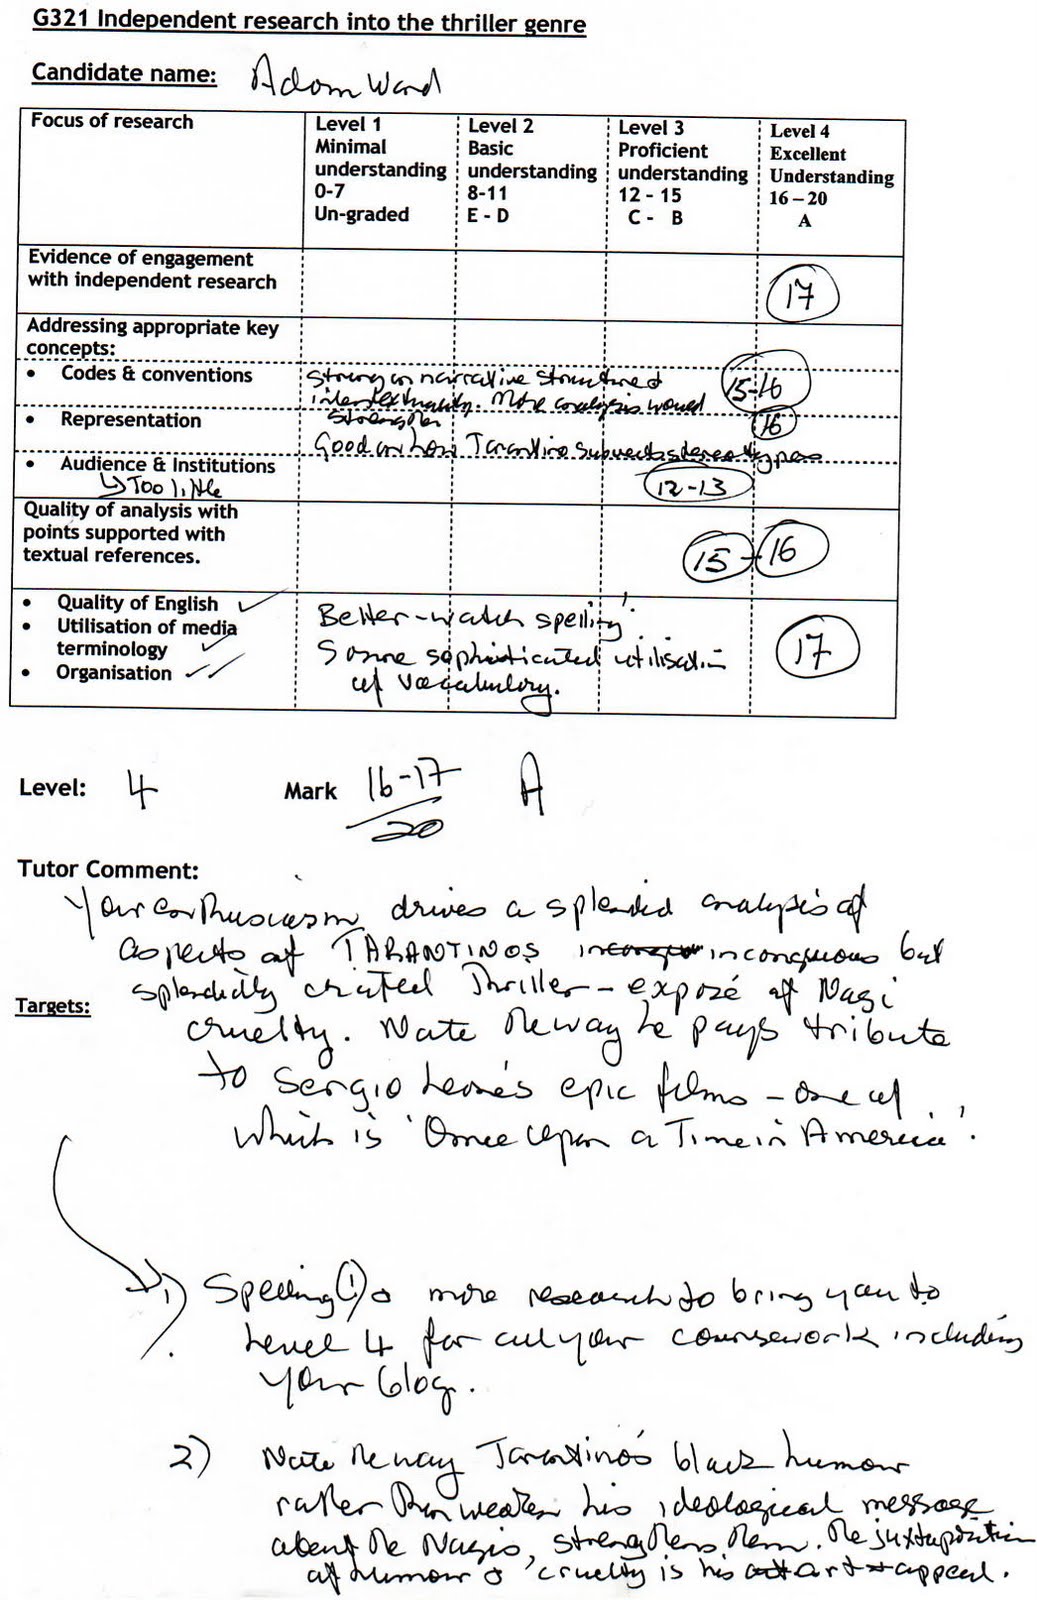 G321 Independent research into the thriller genre
Candidate name: Adam Ward
Focus of research
Level 1
Minimal
understanding
0-7
Un-graded
Level 2
Basic
understanding
8-11
E - D
Level 3
Proficient
understanding
12 - 15
C - B
Level 4
Excellent
Understanding
16 – 20
A
Evidence of engagement
with independent research
17
Addressing appropriate key
concepts:
• Codes & conventions
Strong on narrative structure &
intertextuality. More analysis would
strengthen
15-16
• Representation
Good on how Tarantino subverts stereotypes
16
• Audience & Institutions
↳ Too little
12-13
Quality of analysis with
points supported with
textual references.
15 - 16
• Quality of English ✓
• Utilisation of media
terminology ✓
• Organisation ✓✓
Better - watch spelling!
Some sophisticated utilisation
of vocabulary.
17
Level: 4 Mark 16-17/20 A
Tutor Comment:
Your enthusiasm drives a splendid analysis of
aspects of TARANTINOS incongruous but
splendidly crafted Thriller - exposé of Nazi
Targets:
cruelty. Note the way he pays tribute
to Sergio Leone's epic films - one of
which is 'Once Upon a Time in America'.
1) Spelling (!) & more research to bring you to
Level 4 for all your coursework including
your blog.
2) Note the way Tarantino's black humour
rather than weaken his ideological message
about the Nazis, strengthens them. The juxtaposition
of humour & cruelty is his art & appeal.